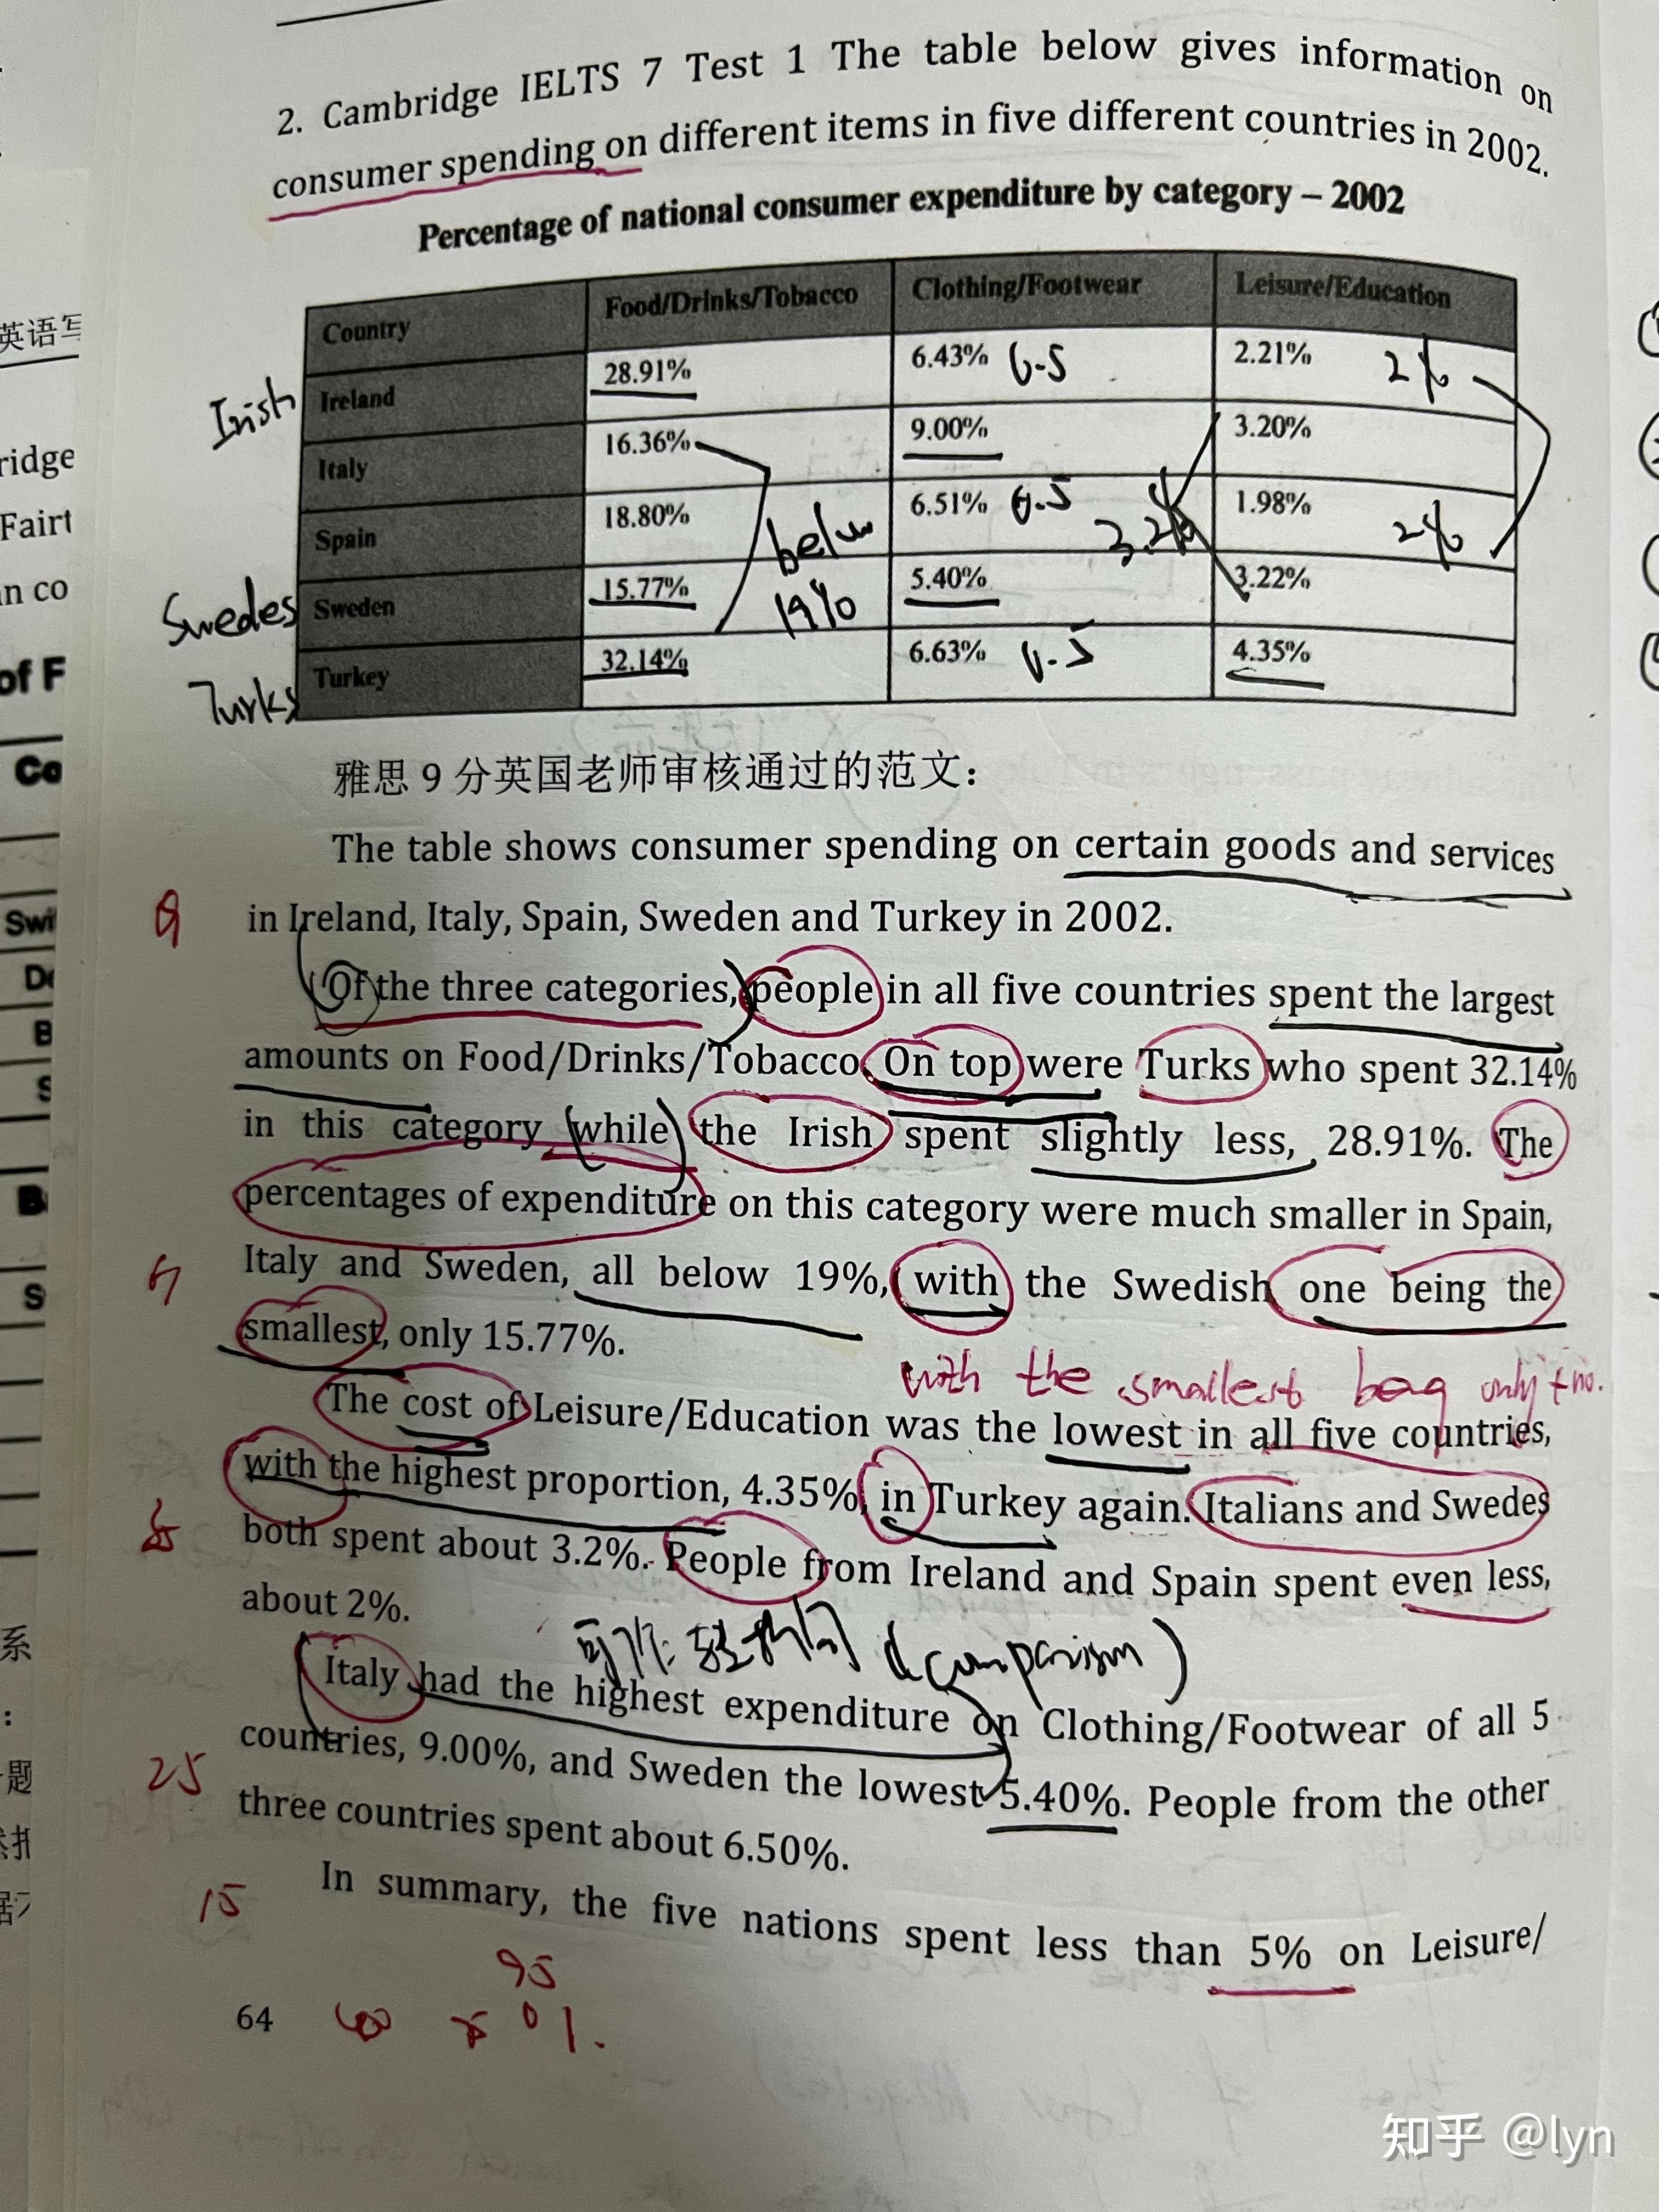 2. Cambridge IELTS 7 Test 1 The table below gives information on
consumer spending on different items in five different countries in 2002.
Percentage of national consumer expenditure by category – 2002
Country Food/Drinks/Tobacco Clothing/Footwear Leisure/Education
Irish Ireland 28.91% 6.43% 6.5 2.21% 2%
Italy 16.36% 9.00% 3.20%
Spain 18.80% 6.51% 6.5 1.98% 2%
below 19%
3.2%
Swedes Sweden 15.77% 5.40% 3.22%
Turks Turkey 32.14% 6.63% 6.5 4.35%
雅思 9 分英国老师审核通过的范文：
The table shows consumer spending on certain goods and services
in Ireland, Italy, Spain, Sweden and Turkey in 2002.
Of the three categories, people in all five countries spent the largest
amounts on Food/Drinks/Tobacco. On top were Turks who spent 32.14%
in this category while the Irish spent slightly less, 28.91%. The
percentages of expenditure on this category were much smaller in Spain,
Italy and Sweden, all below 19%, with the Swedish one being the
smallest, only 15.77%.
with the smallest only
The cost of Leisure/Education was the lowest in all five countries,
with the highest proportion, 4.35%, in Turkey again. Italians and Swedes
both spent about 3.2%. People from Ireland and Spain spent even less,
about 2%.
Italy had the highest expenditure on Clothing/Footwear of all 5
countries, 9.00%, and Sweden the lowest 5.40%. People from the other
25
three countries spent about 6.50%.
15
In summary, the five nations spent less than 5% on Leisure/
95
64
英语写
ridge
Fairt
n co
of F
Co
Swi
De
B
S
B
S
系
：
题
知乎 @lyn